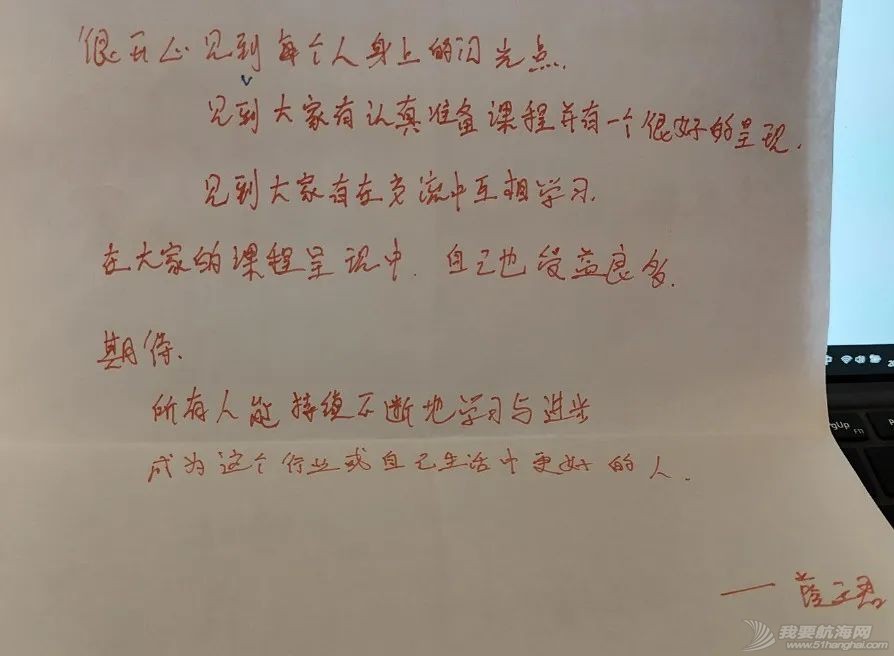 很开心 见到每个人身上的闪光点.
见到大家有认真准备课程并有一个很好的呈现.
见到大家有在交流中互相学习.
在大家的课程呈现中. 自己也受益良多.
期待.
所有人能持续不断地学习与进步
成为这个行业或自己生活中更好的人.
—
PgUp
F11
我要航海网
www.51hanghai.com